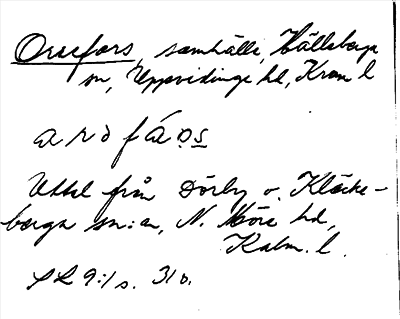 Orrefors, samhälle, Hälleberga
sn, Uppvidinge hd, Kron l
Uttal från Dörby o. Kläcke-
berga sn:ar, N. Möre hd,
Kalm. l.
9:1 s. 310.